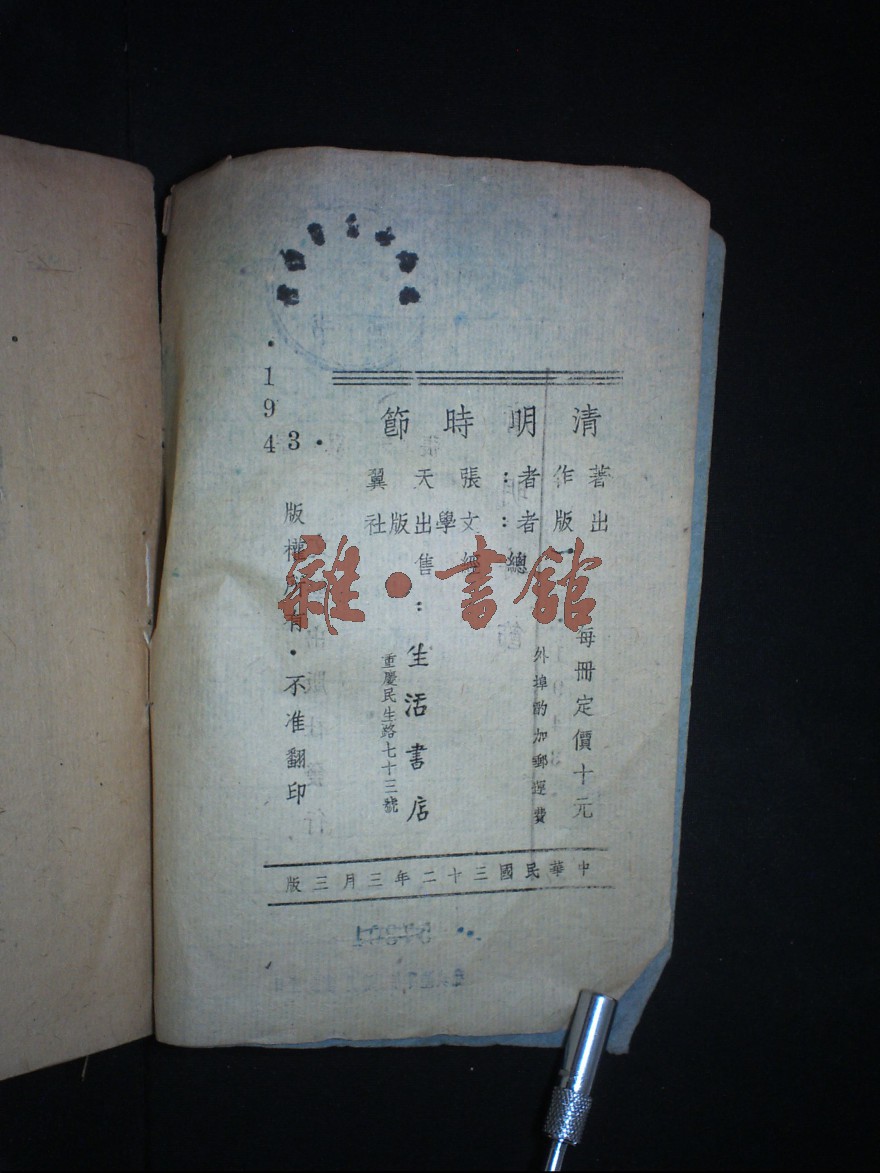 清明時節
著作者：張天翼
出版者：文學出版社
總經售：生活書店
重慶民生路七十三號
每冊定價十元
外埠酌加郵運費
·1943·
版權所有·不准翻印
中華民國三十二年三月三版
雜·書館